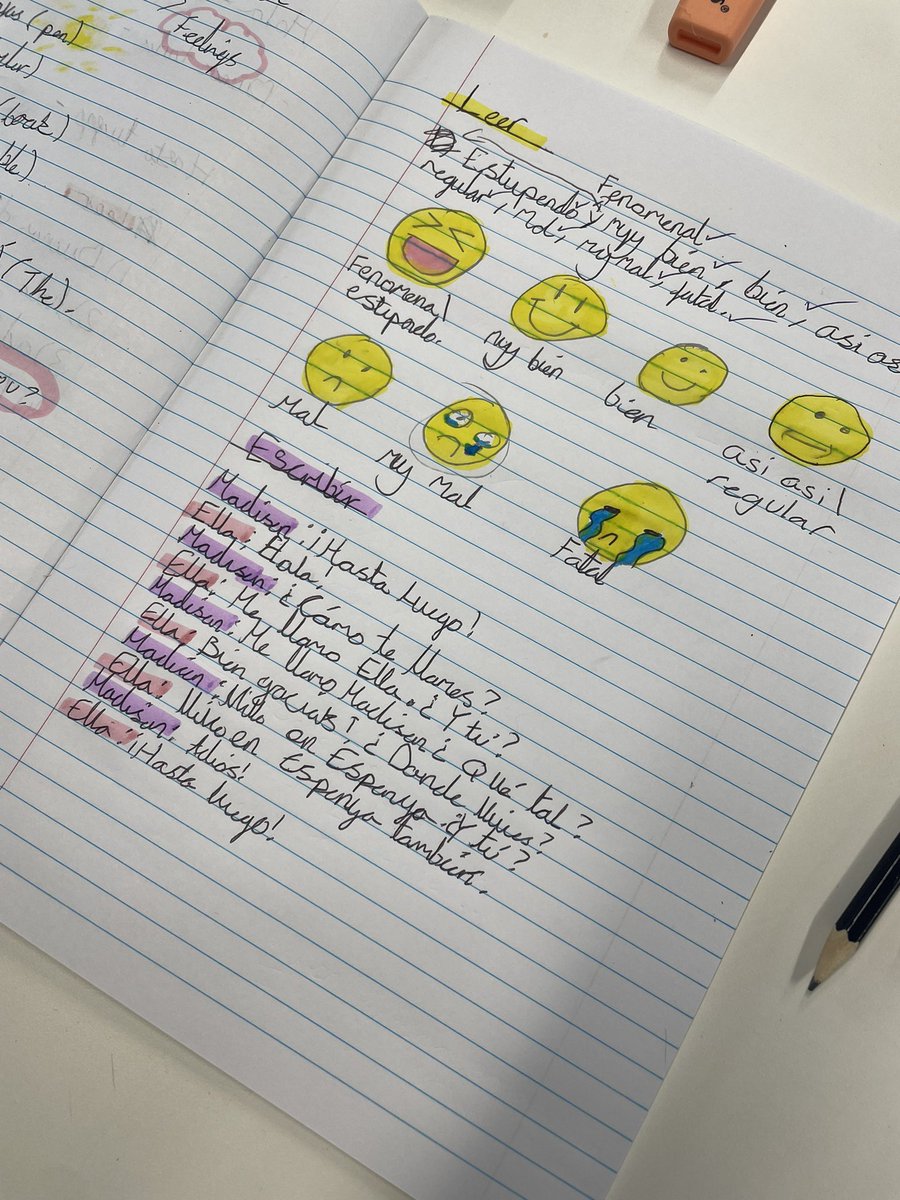 (pen)
Feelings
(The).
Leer
Fenomenal ✓
Estupendo ✓ y muy bién ✓, bién, ✓ asi as
regular ✓, Mal ✓, my mal ✓, fatal. ✓
Fenomenal
estupendo.
my bién
bien
asi asi |
regular
Mal
my Mal
Fatal
Escribir
Madison: ¡Hasta luego!
Ella: Hola,
Madison: ¿Cómo te llames?
Ella: Me llamo Ella. ¿Y tú?
Madison: Me llamo Madison ¿Qué tal?
Ella: Bién gracias ¡ ¿Dande llives?
Madison: ¡Millo en Espenya. ¿Y tú?
Ella: Millo en Espenya también.
Madison: Adios!
Ella: ¡Hasta luego!